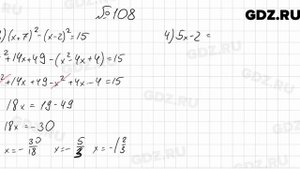 №108
GDZ.RU
)(x+7)²-(x-2)²=15
²+14x+49-(x²-4x+4)=15
²+14x+49-x²+4x-4=15
18x=15-49
18x=-30
x=-30/18 x=-5/3 x=-1 2/3
4)5x-2=
GDZ.RU